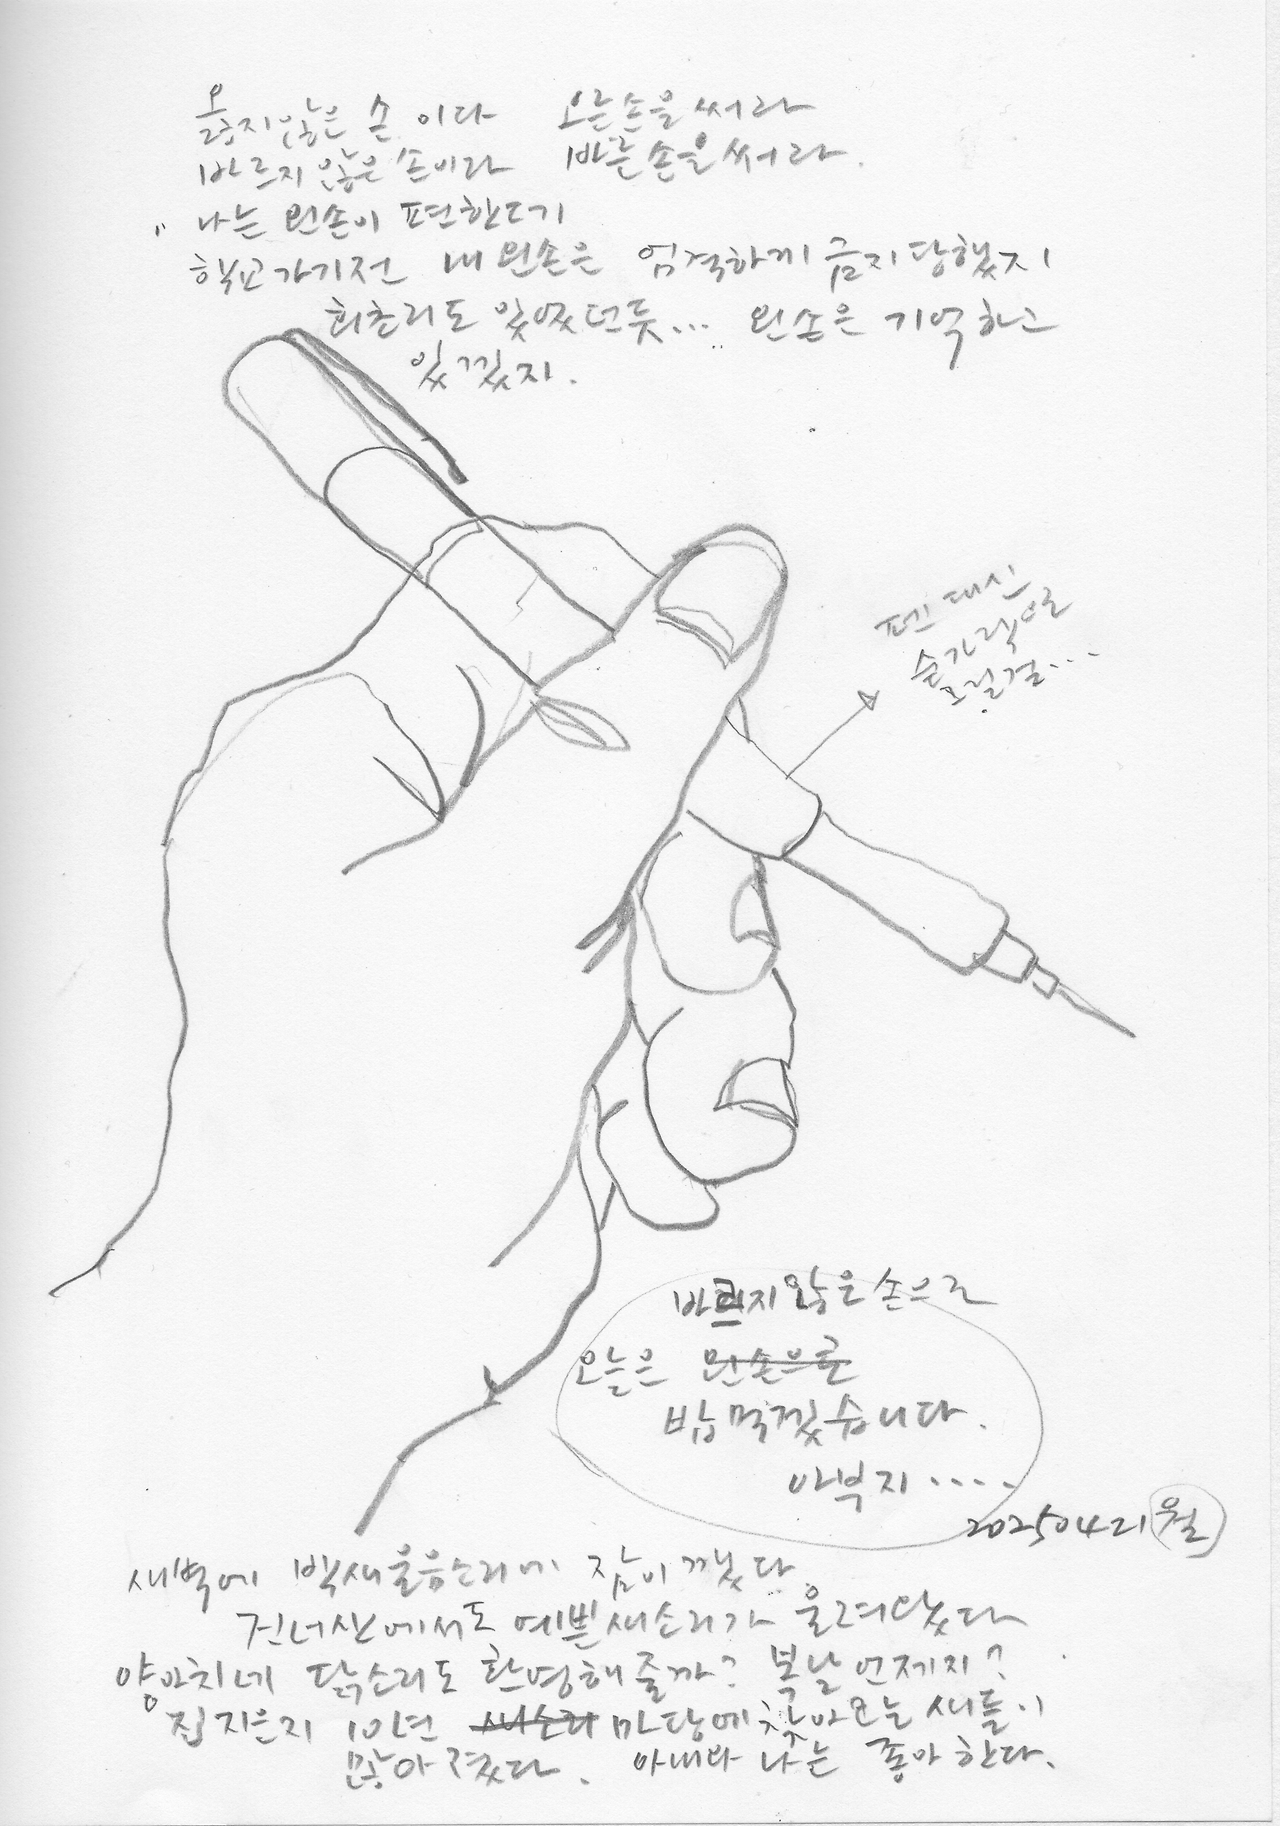 옳지않은 손 이다 오른손을 써라
바르지 않은 손이라 바른손을 써라.
" 나는 왼손이 편한데
학교가기전 내 왼손은 엄격하게 금지당했지
회초리도 있었던듯... 왼손은 기억하고
있겠지.
펜 대신
숟가락으로
그릴걸...
바르지 않은 손으로
오늘은 왼손으로
밥 먹겠습니다.
아부지 ....
20250421 월
새벽에 박새울음소리에 잠이 깼다
건너산에서도 예쁜새소리가 울려왔다
양아치네 닭소리도 환영해 줄까? 복날 언제지?
집 지은지 10년 새소리 마당에 찾아오는 새들이
많아 졌다. 아내와 나는 좋아한다.